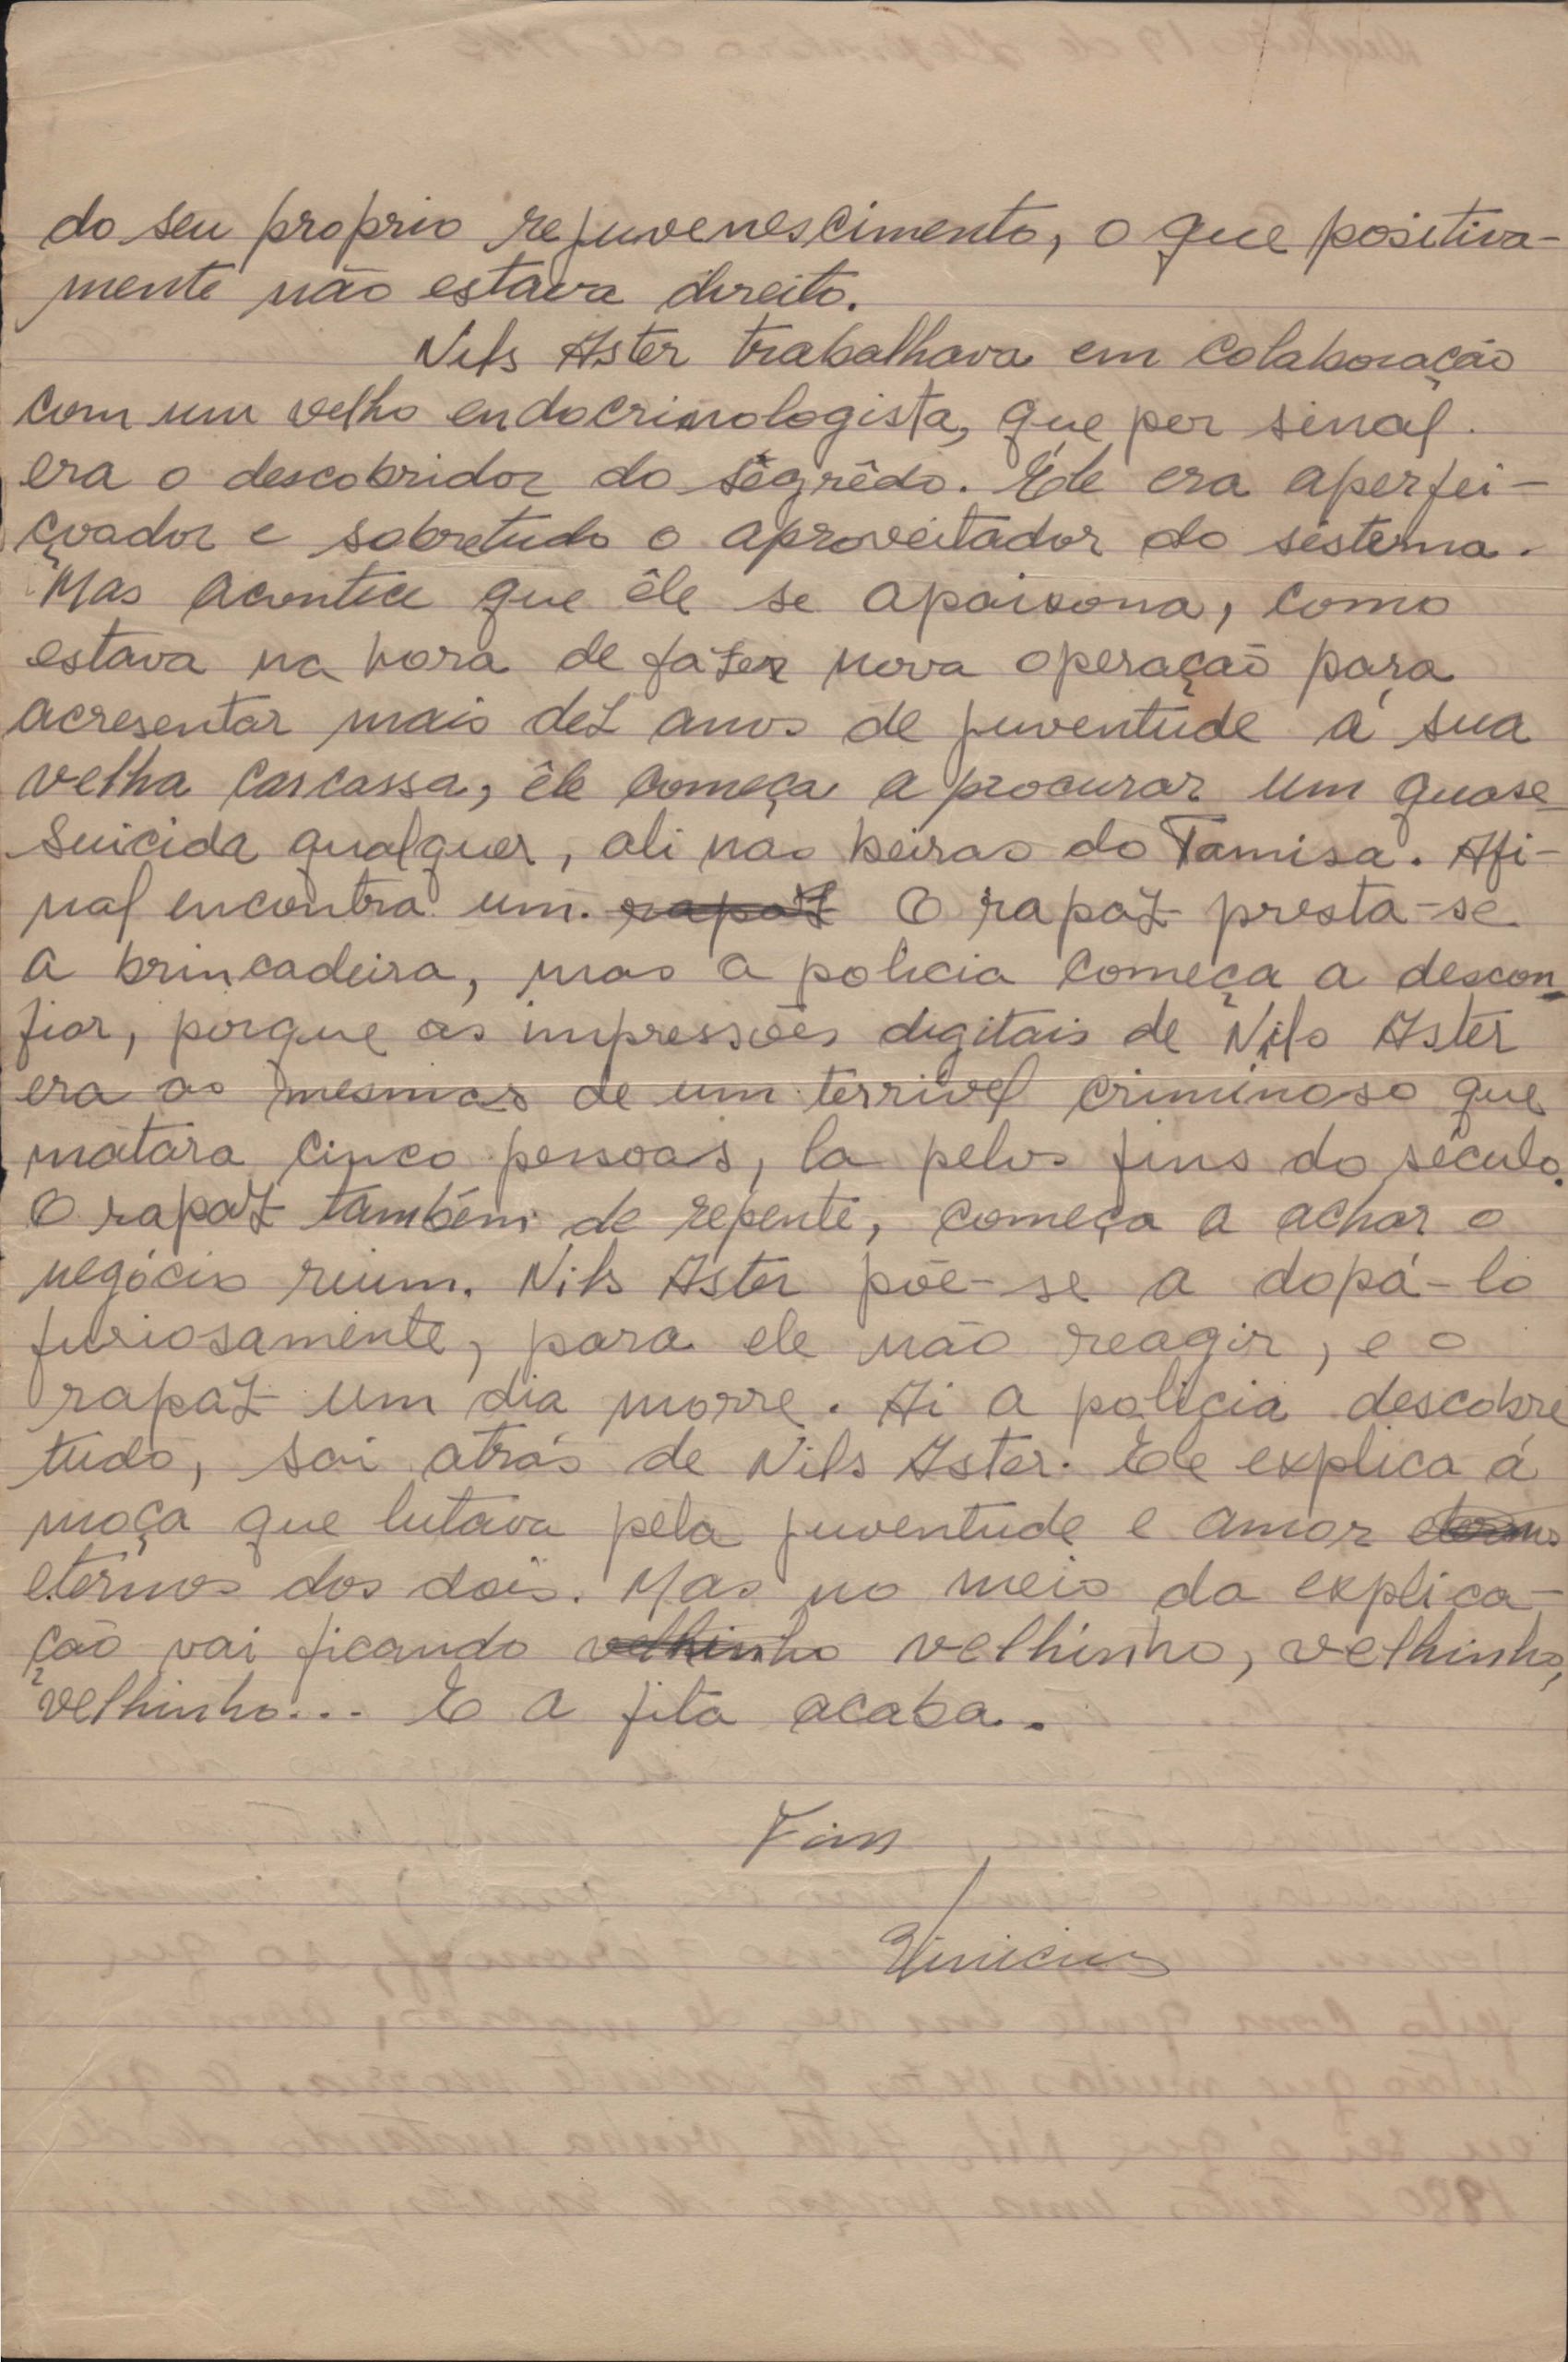 do seu proprio rejuvenescimento, o que positiva-
mente não estava direito.
Nils Aster trabalhava em colaboração
com um velho endocrinologista, que por sinal
era o descobridor do segrêdo. Êle era aperfei-
çoador e sobretudo o aproveitador do sistema.
Mas acontece que êle se apaixona, como
estava na hora de fazer nova operação para
acresentar mais dez anos de juventude á sua
velha carcassa, êle começa a procurar um quase-
suicida qualquer, ali nas beiras do Tamisa. Afi-
nal encontra um. rapaz O rapaz presta-se
a brincadeira, mas a policia começa a descon-
fiar, porque as impressões digitais de Nils Aster
era as mesmas de um terrivel criminoso que
matara cinco pessoas, la pelos fins do século.
O rapaz também de repente, começa a achar o
negócio ruim. Nils Aster põe-se a dopá-lo
furiosamente, para ele não reagir, e o
rapaz um dia morre. Ai a policia descobre
tudo, sai atrás de Nils Aster. Ele explica á
moça que lutava pela juventude e amor eternos
eternos dos dois. Mas no meio da explica-
ção vai ficando velhinho velhinho, velhinho,
velhinho... E a fita acaba.
Fim
Vinicius